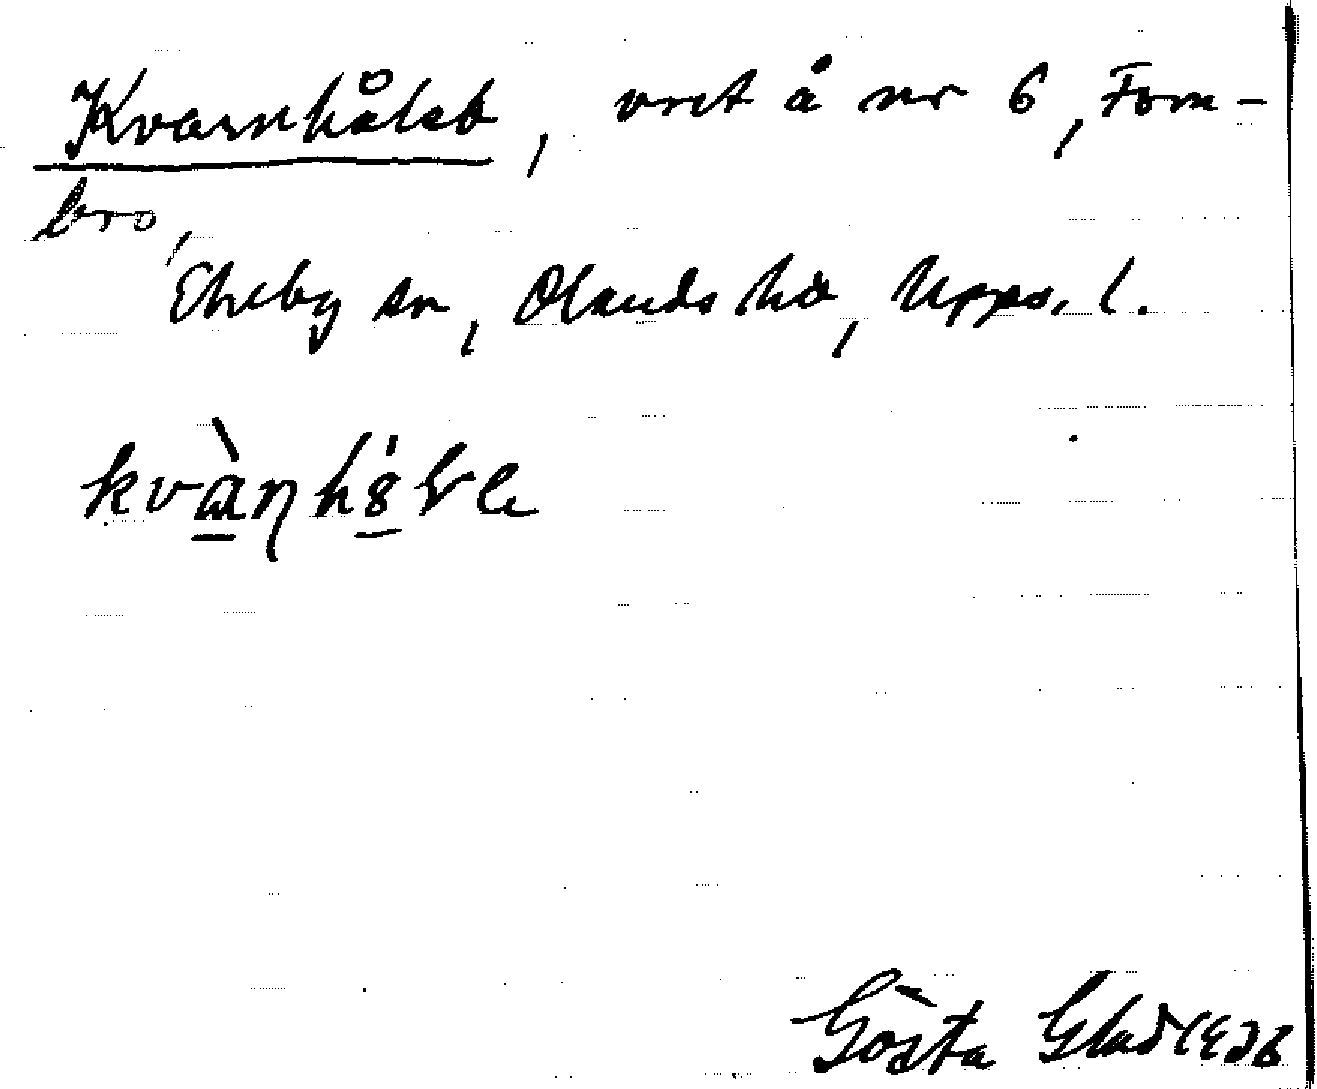 Kvarnhålet, vret å nr 6, Forn-
bro,
Ekeby sn, Olands hd, Upps. l.
Gösta Glad 1936